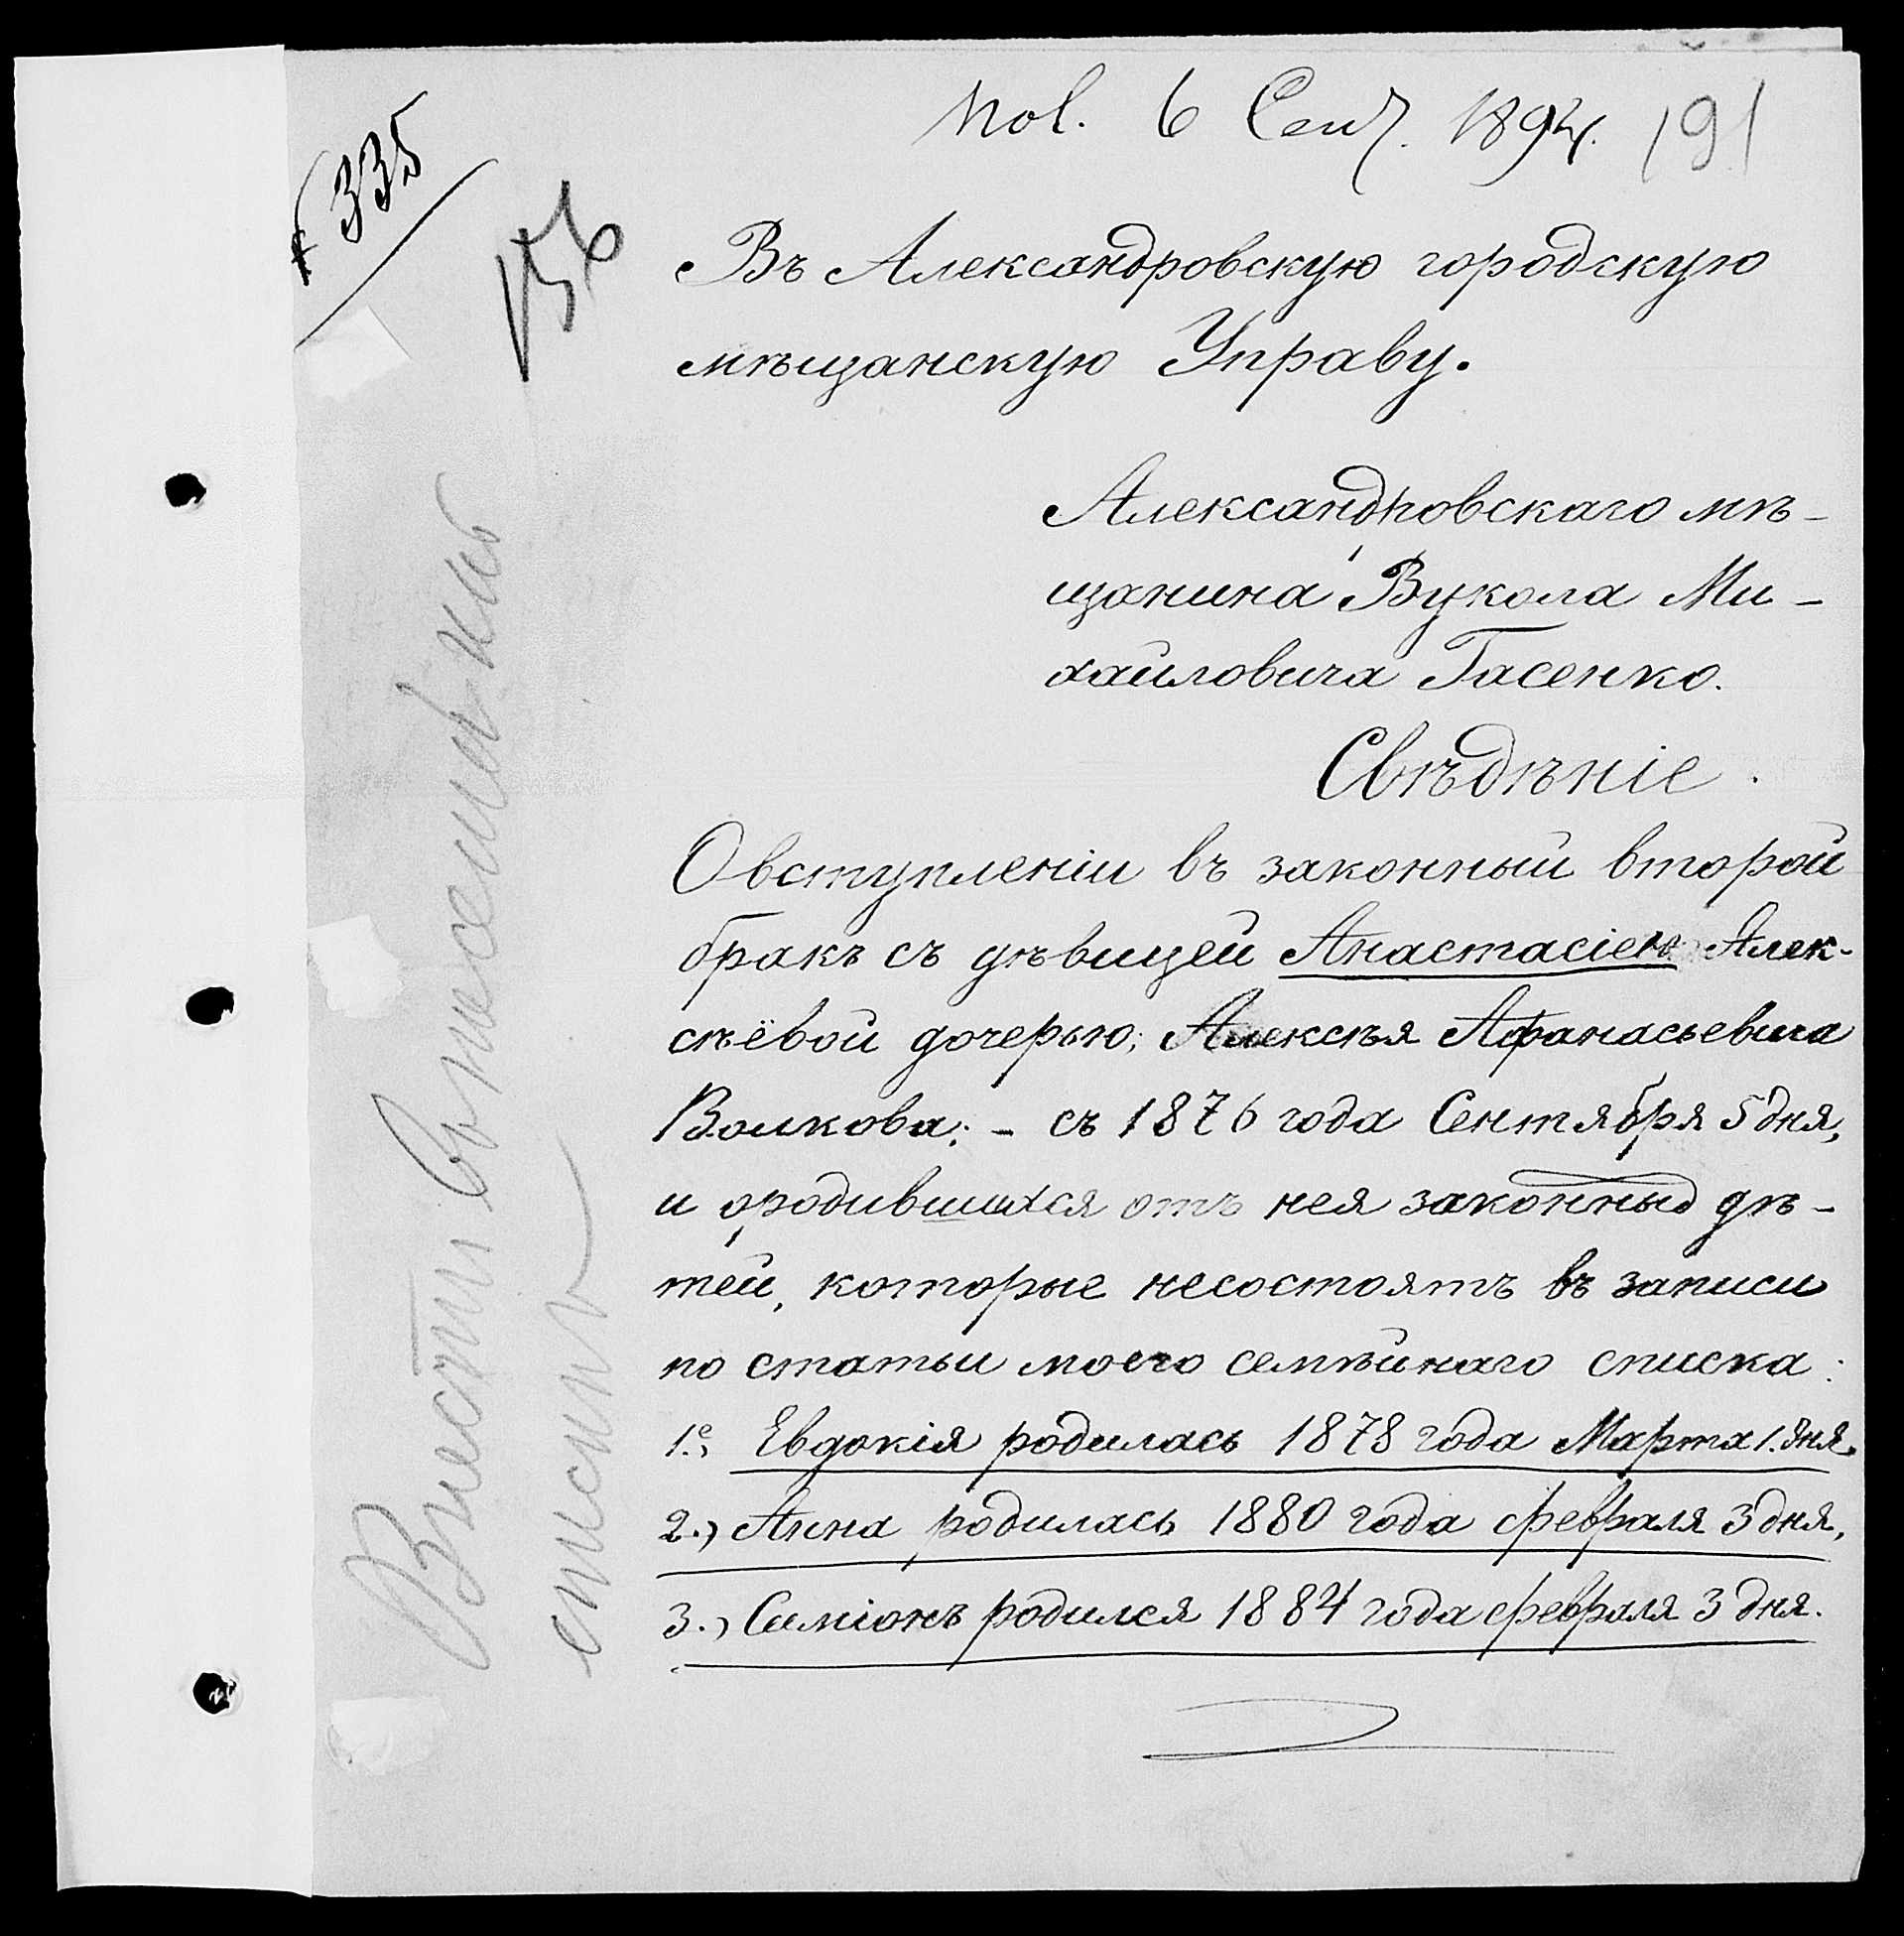 № 335
156
Пол. 6 Сент. 1894. 191
Въ Александровскую городскую
мѣщанскую Управу.
Александровскаго мѣ-
щанина Вукола Ми-
хайловича Гасенко.
Свѣдѣніе.
О вступленіи въ законный второй
бракъ съ дѣвицей Анастасіею Алек-
сѣёвой дочерью; Алексѣя Афанасьевича
Волкова; - съ 1876 года Сентября 5 дня,
и родившихся отъ нея законныхъ дѣ-
тей, которые несостоятъ въ записи
по статьи моего семѣйнаго списка:
1.е, Евдокія родилась 1878 года Марта 1. дня.
2.) Анна родилась 1880 года февраля 3 дня,
3.) Симіонъ родился 1884 года февраля 3 дня.
Внести въ посемейный
списокъ